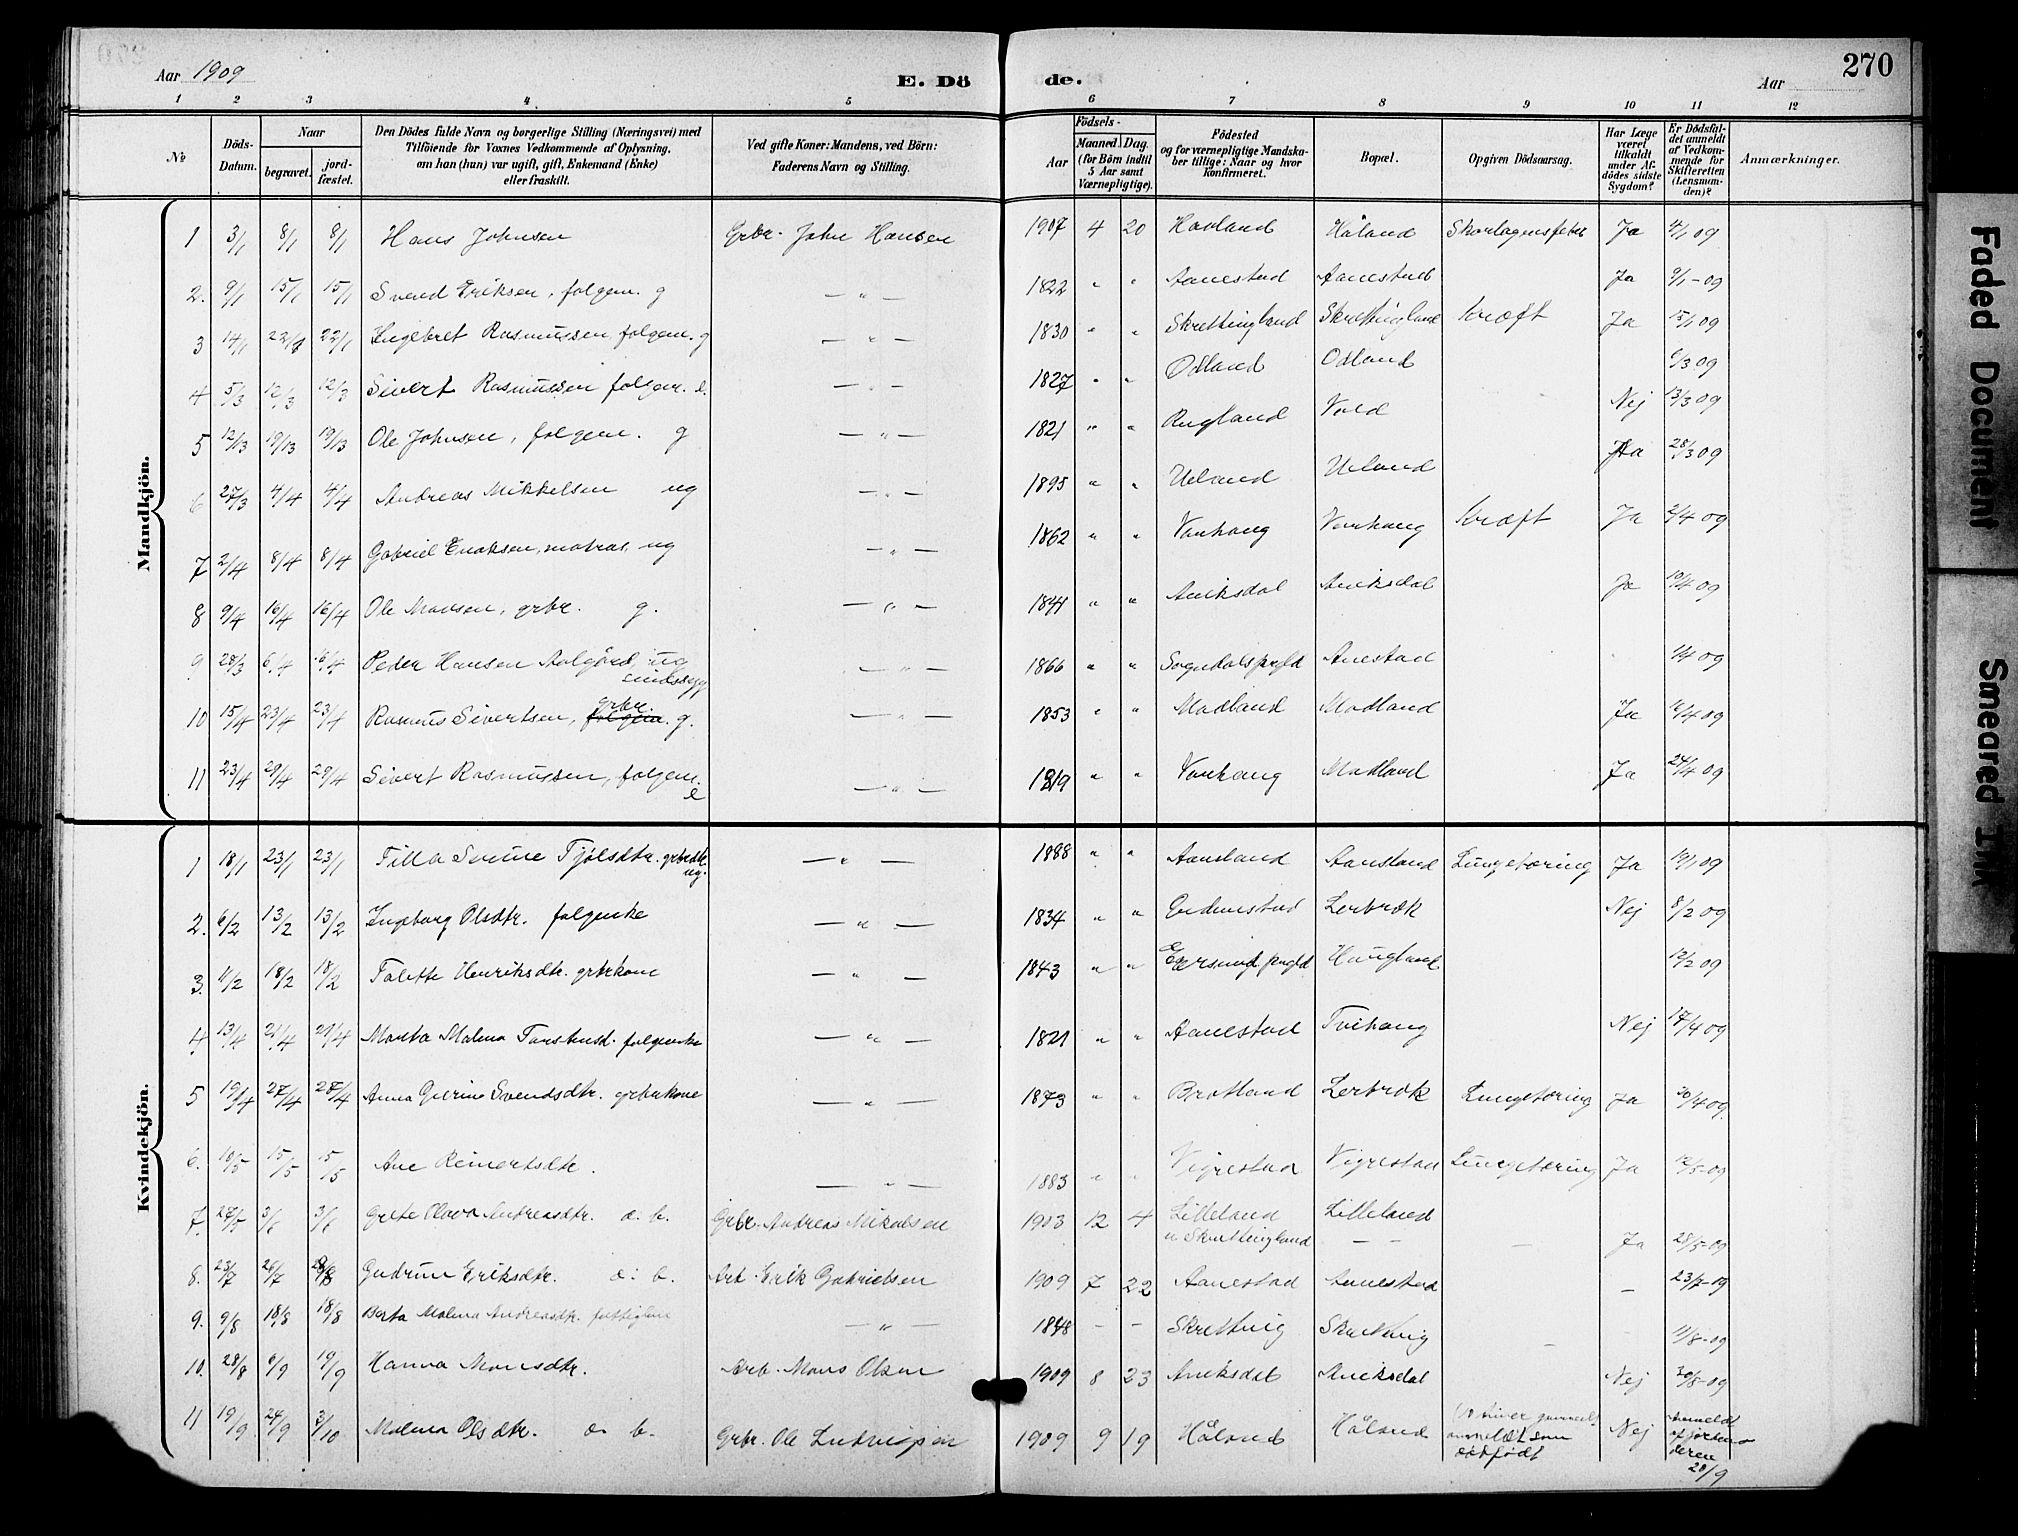 270
Aar 1909 E. Dö de. Aar
1 2 3 4 5 6 7 8 9 10 11 12
№ Döds-Datum. Naar begravet. jordfæstet. Den Dödes fulde Navn og borgerlige Stilling (Næringsvei) med Tilföiende for Voxnes Vedkommende af Oplysning, om han (hun) var ugift, gift, Enkemand (Enke) eller fraskilt. Ved gifte Koner: Mandens, ved Börn: Faderens Navn og Stilling. Födsels- Aar Maaned Dag. (for Börn indtil 5 Aar samt Værnepligtige). Födested og for værnepligtige Mandskaber tillige: Naar og hvor konfirmeret. Bopæl. Opgiven Dödsaarsag. Har Læge været tilkaldt under Afdödes sidste Sygdom? Er Dödsfaldet anmeldt af Vedkommende for Skifteretten (Lensmanden)? Anmærkninger.
Mandkjön.
1 3/1 8/1 8/1 Hans Johnsen Grbr. John Hansen 1907 4 20 Haaland Håland Skarlagensfeber Ja 4/1 09
2. 9/1 15/1 15/1 Svend Eriksen, folgem. g — " — 1822 " " Aanestad Aanestad Ja 9/1-09
3 14/1 22/1 22/1 Ingebret Rasmussen, folgem. g — " — 1830 " " Skrettingland Skrettingland Kræft Ja 15/1 09
4 5/3 12/3 12/3 Sivert Rasmussen folgem. e. — " — 1827 " " Odland Odland 6/3 09
5 12/3 19/3 19/3 Ole Johnsen, folgem. g — " — 1821 " " Rugland Vold Nej 13/3 09
6 27/3 4/4 4/4 Andreas Mikkelsen ug — " — 1895 " " Ueland Ueland Ja 28/3 09
7 2/4 8/4 8/4 Gabriel Enoksen, matros, ug — " — 1862 " " Varhaug Varhaug Kræft Ja 2/4 09
8 9/4 16/4 16/4 Ole Monsen, grbr. g. — " — 1841 " " Aniksdal Aniksdal Ja 10/4 09
9 28/3 6/4 6/4 Peder Hansen Aalgård, ug sindssyg — " — 1866 " " Sogndals prgld Anestad 1/4 09
10 15/4 23/4 23/4 Rasmus Sivertsen, grbr. folgem. g. — " — 1853 " " Madland Madland Ja 16/4 09
11 23/4 29/4 29/4 Sivert Rasmussen, folgem. e — " — 1819 " " Varhaug Madland Ja 24/4 09
Kvindekjön.
1 18/1 23/1 23/1 Tilla Serine Tjølsdtr. grbrdtr. ug. — " — 1888 " " Aansland Aansland Lungetæring Ja 19/1 09
2. 6/2 13/2 13/2 Ingeborg Olsdtr. folgenke — " — 1834 " " Gudmestad Lerbræk Nej 8/2 09
3. 11/2 18/2 18/2 Talette Henriksdtr. grbrkone — " — 1843 " " Egersund prgld Haugland 12/2 09
4. 13/4 21/4 21/4 Marta Malena Torstensd. folgenke — " — 1821 " " Aanestad Tvihaug Nej 17/4 09
5 19/4 27/4 27/4 Anna Gurine Svendsdtr. grbrkone — " — 1873 " " Bratland Lerbræk Lungetæring Ja 20/4 09
6. 10/5 15/5 15/5 Ane Reinertsdtr. — " — 1883 " " Vigrestad Vigrestad Lungetæring Ja 12/5-09
7. 27/5 3/6 3/6 Grete Olava Andreasdtr. æ. b. Grbr. Andreas Mikalsen 1903 12 4 Lilleland u Skrettingland Lilleland — — — Ja 28/5-09
8. 23/7 26/7 Gudrun Eriksdtr. æ. b. Arb. Erik Gabrielsen 1909 7 22 Aanestad Aanestad — 23/7-09
9. 9/8 18/8 18/8 Berta Malena Andreasdtr. fattiglem — " — 1848 — — Skretting Skretting — 11/8-09
10. 28/8 6/9 19/9 Hanna Monsdtr. Arb. Mons Olsen 1909 8 23 Aniksdal Aniksdal Nej 30/8-09
11 19/9 24/9 3/10 Malena Olsdtr. æ. b. Grbr. Ole Ludvigsen 1909 9 19 Håland Håland timer gammelt anmeldt som dødfødt Nej Anmeldt af Jordmoderen 20/9
Faded Document
Smeared Ink